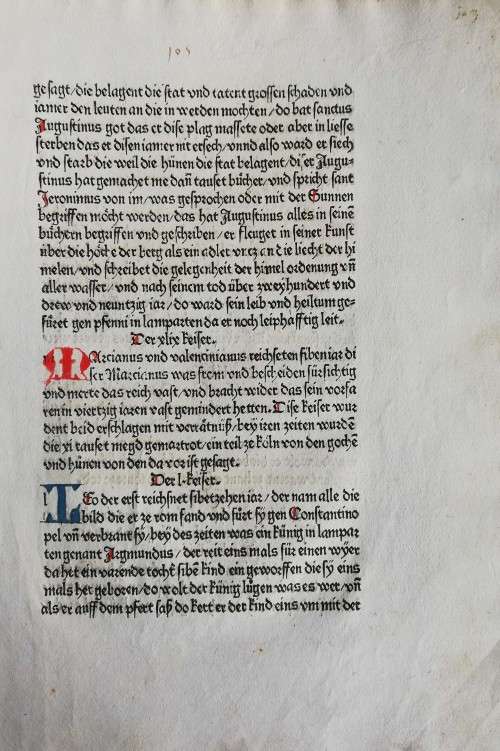 ge sagt/die belagent die stat vnd tatent grossen schaden vnd
iamer den leuten an die in werden mochten/do bat sanctus
Augustinus got das er dise plag massete oder aber in liesse
sterben das er disen iamer nit ersech/vnnd also ward er siech
vnd starb die weil die hünen die stat belagent/diser Augu-
stinus hat gemachet me dañ tauset bücher/vnd spricht sant
Jeronimus von im/was gesprochen oder mit der Sunnen
begriffen möcht werden/das hat Augustinus alles in seinē
büchern begriffen vnd geschriben/er fleuget in seiner kunst
über die höche der berg als ein adler vntz an die liecht der hi
melen/vnd schreibet die gelegenheit der himel ordenung vñ
aller wasser/vnd nach seinem tod über zweyhundert vnd
drew vnd neuntzig iar/do ward sein leib vnd heiltum ge-
füret gen pfenni in lamparten da er noch leiphafftig leit.
Der xlix keiser.
MArcianus vnd valencinianus reichseten siben iar di
ser Marcianus was from vnd bescheiden fürsichtig
vnd merte das reich vast/vnd bracht wider das sein vorfa
ren in viertzig iaren vast gemindert hetten. Dise keiser wur
dent beid erschlagen mit verrätnüß/bey iren zeiten wurdē
die xi tauset megd gemartrot/ein teil ze köln von den gochē
vnd hünen von den da vor ist gesagt.
Der l. keiser.
LEo der erst reichsnet sibetzehen iar/der nam alle die
bild die er ze rom fand vnd fürt sy gen Constantino
pel vñ verbrant sy/bey des zeiten was ein künig in lampar
ten genant Argmundus/der reit eins mals für einen wyer
da het ein varende tocht siben kind ein geworffen die sy eins
mals het geboren/do wolt der künig lügen was es wer/vñ
als er auff dem pfert saß do kert er der kind eins vm mit der